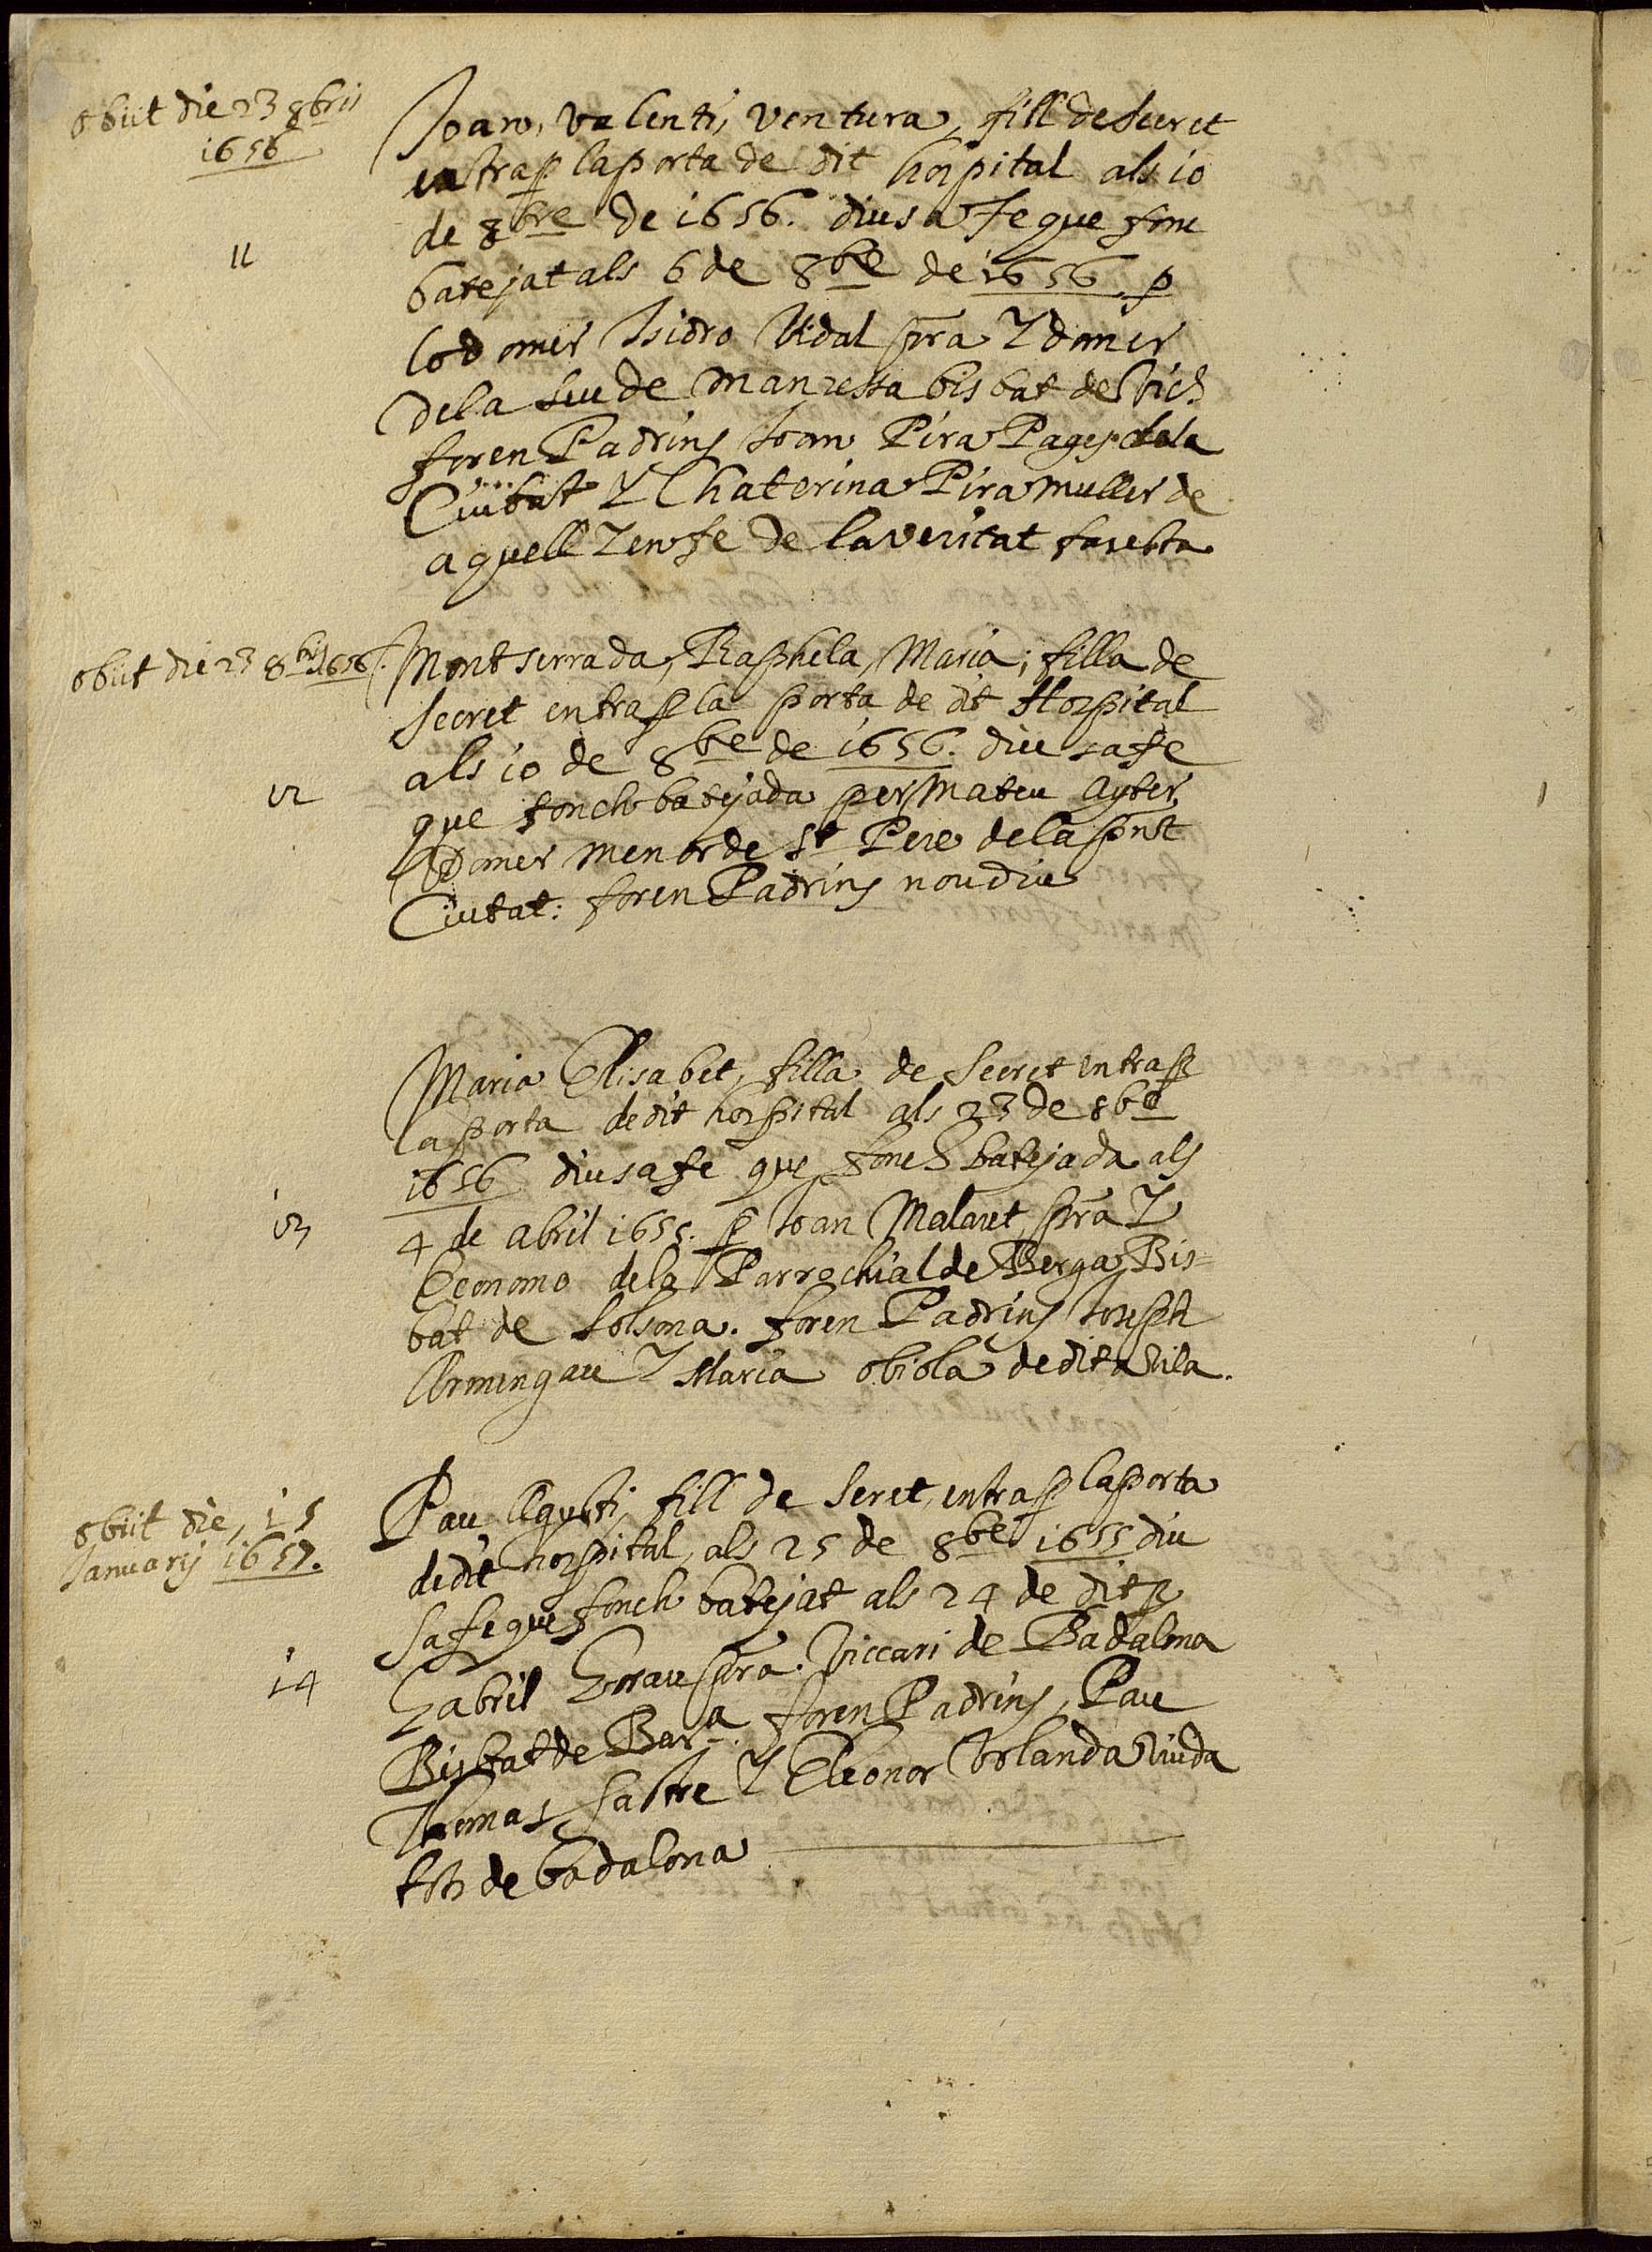 obiit die 23 8bris
1656
Joan, Valenti, Ventura, fill de secret
entra p la porta de dit hospital als 10
de 8bre de 1656. diu sa fe que fonc
11
batejat als 6 de 8bre de 1656 p
lo domer Isidro Vidal pra Y domer
de la seu de Manresa bisbat de Vich
foren Padrins Joan Pira Pages de la
Ciutat Y Chaterina Pira muller de
aquell Y en fe de la veritat fas esta
obiit die 23 8bris 1656.
Montserrada, Raphela, Maria; filla de
secret entra p la porta de dit Hospital
als 10 de 8bre de 1656. diu sa fe
12
que fonch batejada per Mateu Ayter
Domer menor de St Pere de la pnt
Ciutat: foren Padrins nou diu
Maria Elisabet, filla de secret entra p
la porta de dit hospital als 23 de 8bre
1656 diu sa fe que fonch batejada als
13
4 de abril 1655. p Joan Malaret pra Y
Economo de la Parrochial de Berga Bis-
bat de Solsona. foren Padrins Joseph
Armengau Y Maria Obiola de dita Vila.
Pau Agusti, fill de seret, entra p la porta
obiit die, 15
Januarij 1657.
de dit hospital, als 25 de 8bre 1655 diu
sa fe que fonch batejat als 24 de dit p
14
Gabril Grau pra. Viccari de Badalona
Bisbat de Bara. foren Padrins, Pau
Thomas, sastre Y Eleonor Volanda Viuda
tots de badalona